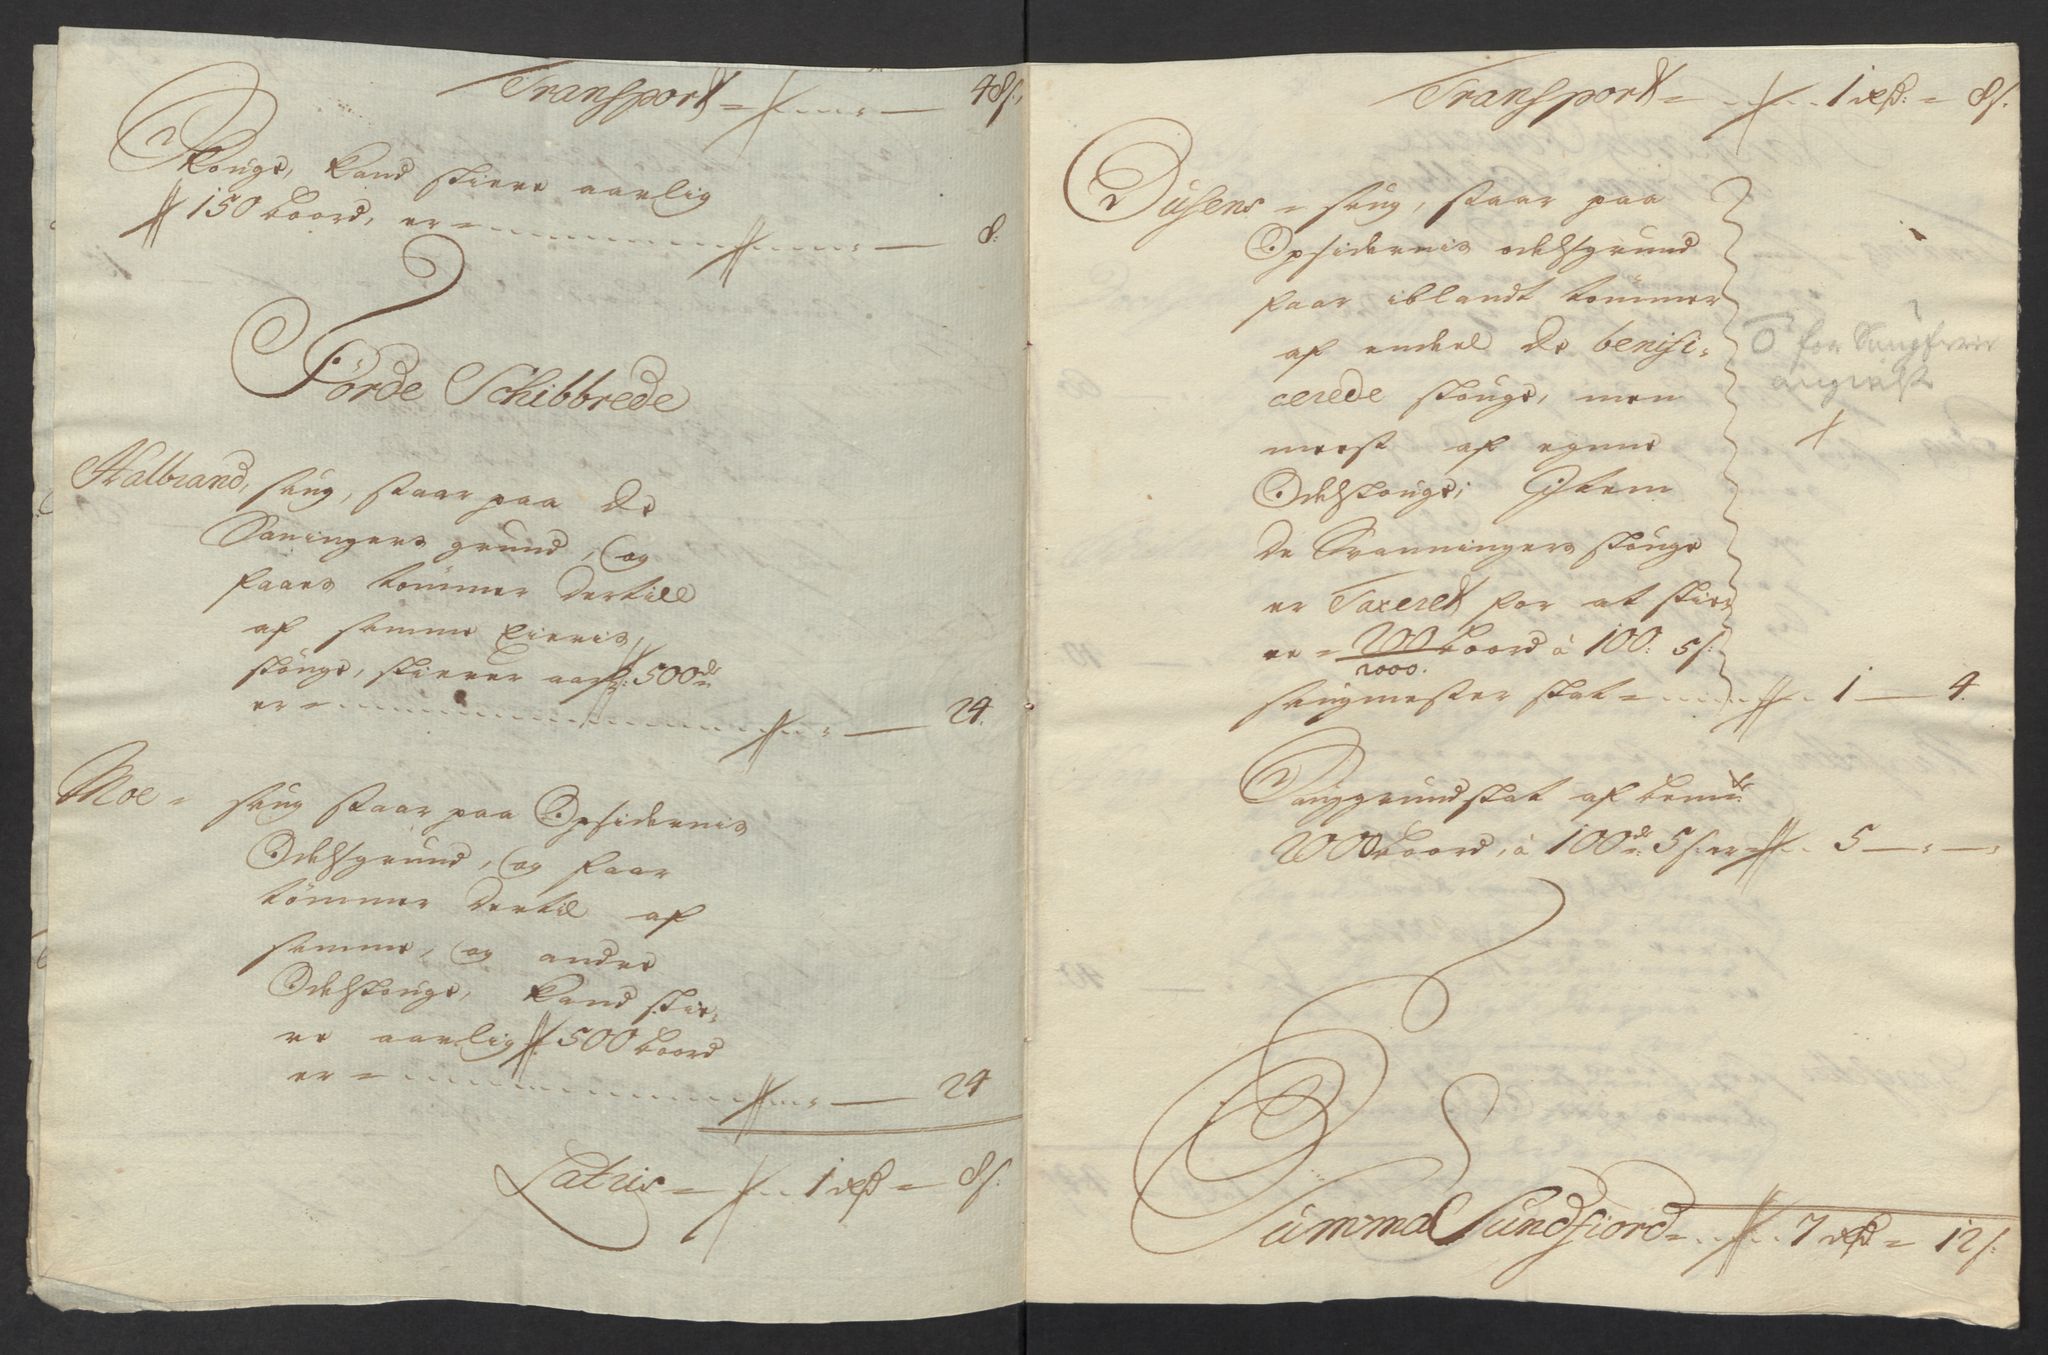 Transport = 48 s.
Skouge, kand skiere aarlig
150 boord, er = 8:
Förde Schibbrede
Halbrand, saug, staar paa De
Svaningers grund, og
faaes tømmer Dertill
af samme Eieris
skouge, skierer aarl: 500de
er = 24.
Moe = saug staar paa Opsidernis
Odelsgrund, og faar
tømmer Dertil af
samme, og andre
Odelskouge, kand skie-
re aarlig 500 boord
er = 24
Latus = 1 rdr = 8 s:
Transport = 1 rdr: = 8 s.
Dusens = saug, staar paa
Opsidernis odelsgrund
faar iblandt tømmer
af endeel De benifi-
cerede skouge, men
meest af egene
Odelskouge; Jtem
De Svanningers skouge
er Taxeret for at skie-
re = 200 boord à 100: 5 s:
2000.
saugmester skat = 1 — 4.
Sauggrundskat af bemte
2000 boord, à 100de 5 s: er 5 — : —
for Saug
angivelse
Summa Sundfiord = 7 rdr = 12 s: